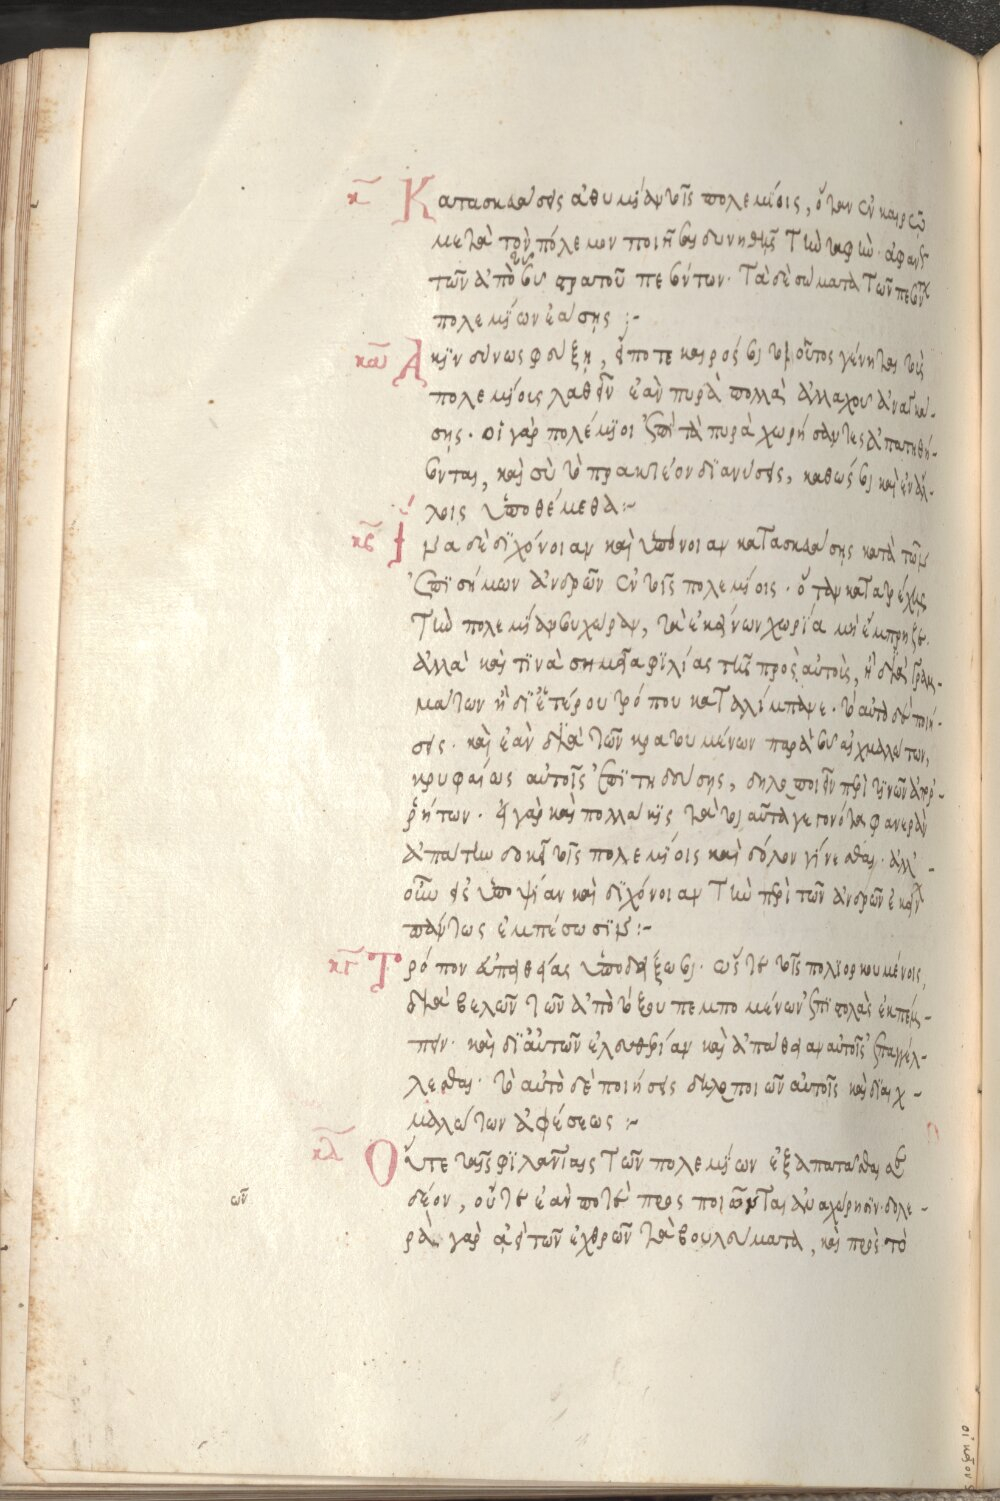 κ Κατασκευάσεις ἀθυμίαν τοῖς πολεμίοις, ὅταν ἐν καιρῷ
μετὰ τὸν πόλεμον ποιῆσαι δυνηθῇς τὴν ταφὴν ἀφανῶς
τῶν ἀπὸ τοῦ σου στρατοῦ πεσόντων. Τὰ δὲ σώματα τῶν πεσόντων
πολεμίων ἐάσῃς :-
κα Ἀκινδύνως φεύξῃ, εἴποτε καιρός σοι τοιοῦτος γένηται τοὺς
πολεμίους λαθεῖν ἐὰν πυρὰ πολλὰ ἀλλαχοῦ ἀνακαύ-
σῃς. οἱ γὰρ πολέμιοι ἐπὶ τὰ πυρὰ χωρήσαντες ἀπατηθή-
σονται, καὶ σὺ τὸ πρακτέον διανύσεις, καθώς σοι καὶ ἐν ἄλ-
λοις ὑποθέμεθα :-
κβ Ἵνα δὲ διχόνοιαν καὶ ὑπόνοιαν κατασκευάσῃς κατὰ τῶν
ἐπισήμων ἀνδρῶν ἐν τοῖς πολεμίοις. ὅταν κατατρέχῃς
τὴν πολεμίαν σου χώραν, τὰ ἐκείνων χωρία μὴ ἔμπρηζε.
ἀλλὰ καί τινα σημεῖα φιλίας τῆς πρὸς αὐτοὺς, ἢ διὰ γραμ-
μάτων ἢ δι ἑτέρου τρόπου καταλίμπανε. τὸ αὐτὸ δὲ ποιή-
σεις. καὶ ἐὰν διὰ τῶν κρατουμένων παρὰ σοῦ αἰχμαλώτων,
κρυφαίως αὐτοῖς ἐπιτηδεύσῃς, δηλοποιεῖν περὶ τινῶν ἀπορ-
ρήτων. εἰ γὰρ καὶ πολλάκις τὰ τοιαῦτα γεγονότα φανερὰν
ἀπάτην δοκεῖ τοῖς πολεμίοις καὶ δόλον γίνεσθαι. ἀλλ'
οὖν εἰς ὑποψίαν καὶ διχόνοιαν τὴν περὶ τῶν ἀνδρῶν ἐκείνων
πάντως ἐμπέσωσιν :-
κγ Τρόπον ἀπειθείας ὑποδείξω σοι. ὥστε τοῖς πολιορκουμένοις,
διὰ βελῶν τῶν ἀπὸ τόξου πεμπομένων ἐπιστολὰς ἐκπέμ-
πειν. καὶ δι αὐτῶν ἐλευθερίαν καὶ ἀπάθειαν αὐτοῖς ἐπαγγέλ-
λεσθαι. τὸ αὐτὸ δὲ ποιήσεις δηλοποιῶν αὐτοῖς καὶ δι αἰχ-
μαλώτων ἀφέσεως :-
κδ Οὔτε ταῖς φιλανθρωπίαις τῶν πολεμίων ἐξαπατᾶσθαί σε
δέον, οὔτε ἐὰν ποτὲ προσποιῶνται ἀναχώρησιν. δολε-
ρὰ γὰρ ἀεὶ τῶν ἐχθρῶν τὰ βουλεύματα, καὶ πρὸς τὸ
ων